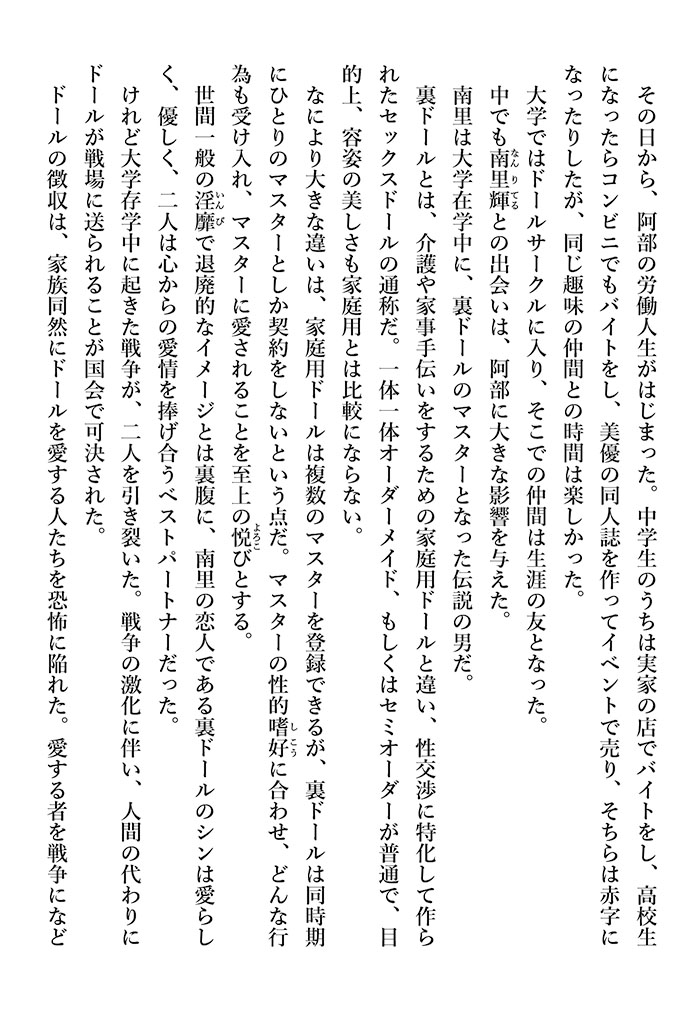 その日から、阿部の労働人生がはじまった。中学生のうちは実家の店でバイトをし、高校生
になったらコンビニでもバイトをし、美優の同人誌を作ってイベントで売り、そちらは赤字に
なったりしたが、同じ趣味の仲間との時間は楽しかった。
大学ではドールサークルに入り、そこでの仲間は生涯の友となった。
中でも南里輝との出会いは、阿部に大きな影響を与えた。
なんりてる
南里は大学在学中に、裏ドールのマスターとなった伝説の男だ。
裏ドールとは、介護や家事手伝いをするための家庭用ドールと違い、性交渉に特化して作ら
れたセックスドールの通称だ。一体一体オーダーメイド、もしくはセミオーダーが普通で、目
的上、容姿の美しさも家庭用とは比較にならない。
なにより大きな違いは、家庭用ドールは複数のマスターを登録できるが、裏ドールは同時期
にひとりのマスターとしか契約をしないという点だ。マスターの性的嗜好に合わせ、どんな行
しこう
為も受け入れ、マスターに愛されることを至上の悦びとする。
よろこ
世間一般の淫靡で退廃的なイメージとは裏腹に、南里の恋人である裏ドールのシンは愛らし
いんび
く、優しく、二人は心からの愛情を捧げ合うベストパートナーだった。
けれど大学存学中に起きた戦争が、二人を引き裂いた。戦争の激化に伴い、人間の代わりに
ドールが戦場に送られることが国会で可決された。
ドールの徴収は、家族同然にドールを愛する人たちを恐怖に陥れた。愛する者を戦争になど